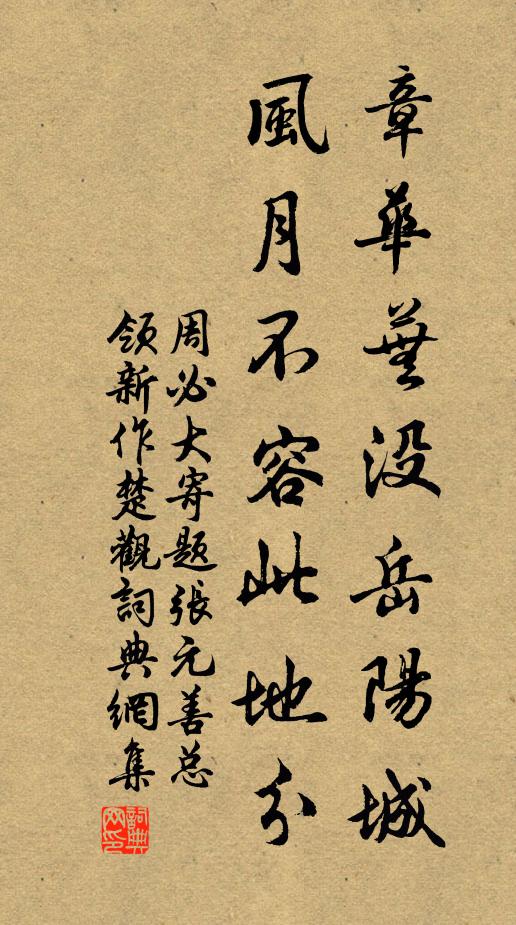 章華蕪没岳陽城
風月不容此地分
周必大寄題張元善总
領新作楚觀詞典網集
詞典网印